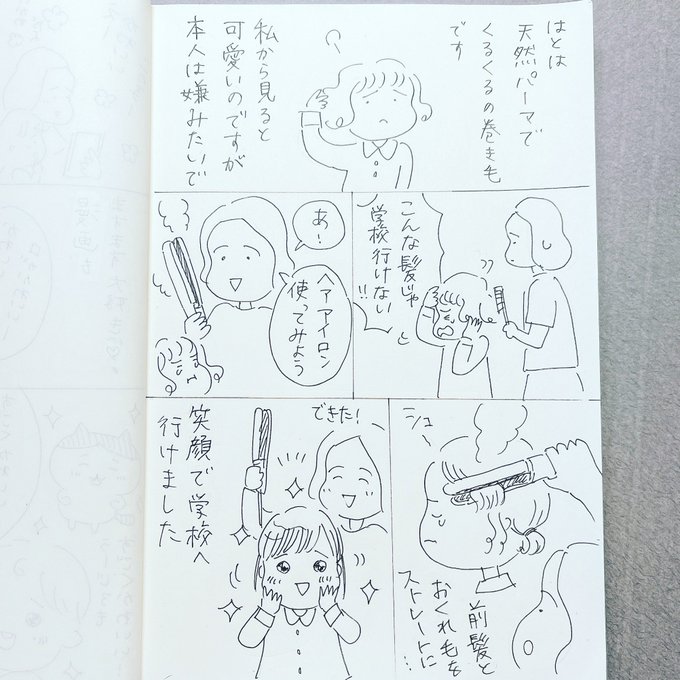 はとは
天然パーマで
くるくるの巻き毛
です
私から見ると
可愛いのですが
本人は嫌みたいで
こんな髪じゃ
学校行けない
!!
あ!
ヘアアイロン
使ってみよう
シュー
前髪と
おくれ毛を
ストレートに…
できた!
笑顔で学校へ
行けました